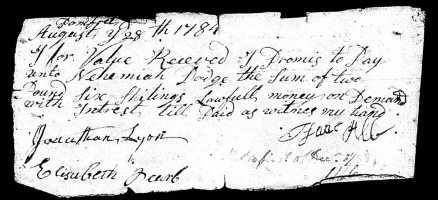 Pomfret
August, ye 28th 1784
I for Value Receved I Promis to Pay
unto Nehemiah Dodge the Sum of two
Pound six Shilings Lawfull money on Demand
with Interest till Paid as witnes my hand
Isaac
Jonathan Lyon
Elisabeth